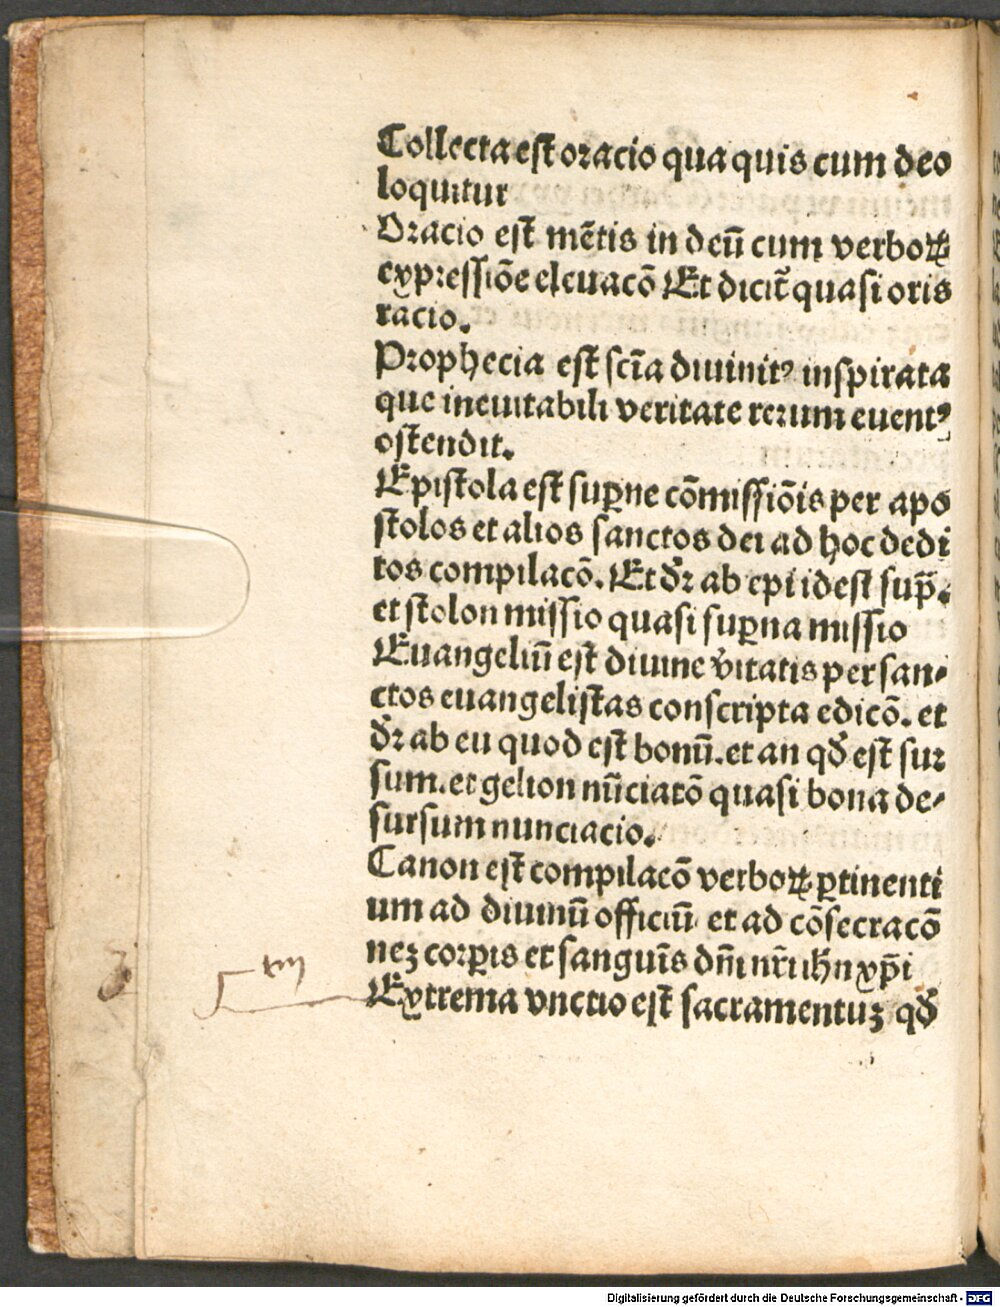 Collecta est oracio qua quis cum deo
loquitur
Oracio est mētis in deū cum verboꝝ
expressiōe eleuacō Et dicit᷑ quasi oris
racio.
Prophecia est scīa diuinitꝰ inspirata
que ineuitabili veritate rerum euentꝰ
ostendit.
Epistola est suꝑne cōmissiōis per apo
stolos et alios sanctos dei ad hoc dedi
tos compilacō. Et dr̄ ab epi idest sup̄.
et stolon missio quasi suꝑna missio
Euangeliū est diuine v̄itatis per san⸗
ctos euangelistas conscripta edicō. et
dr̄ ab eu quod est bonū. et an qd̄ est sur
sum. et gelion nūciacō quasi bona de⸗
sursum nunciacio.
Canon est compilacō verboꝝ ꝑtinenti
um ad diuinū officiū et ad cōsecracō
nez corꝑis et sanguīs dn̄i nr̄i ihū xp̄i
Extrema vnctio est sacramentuz qd̄
Digitalisierung gefördert durch die Deutsche Forschungsgemeinschaft - DFG